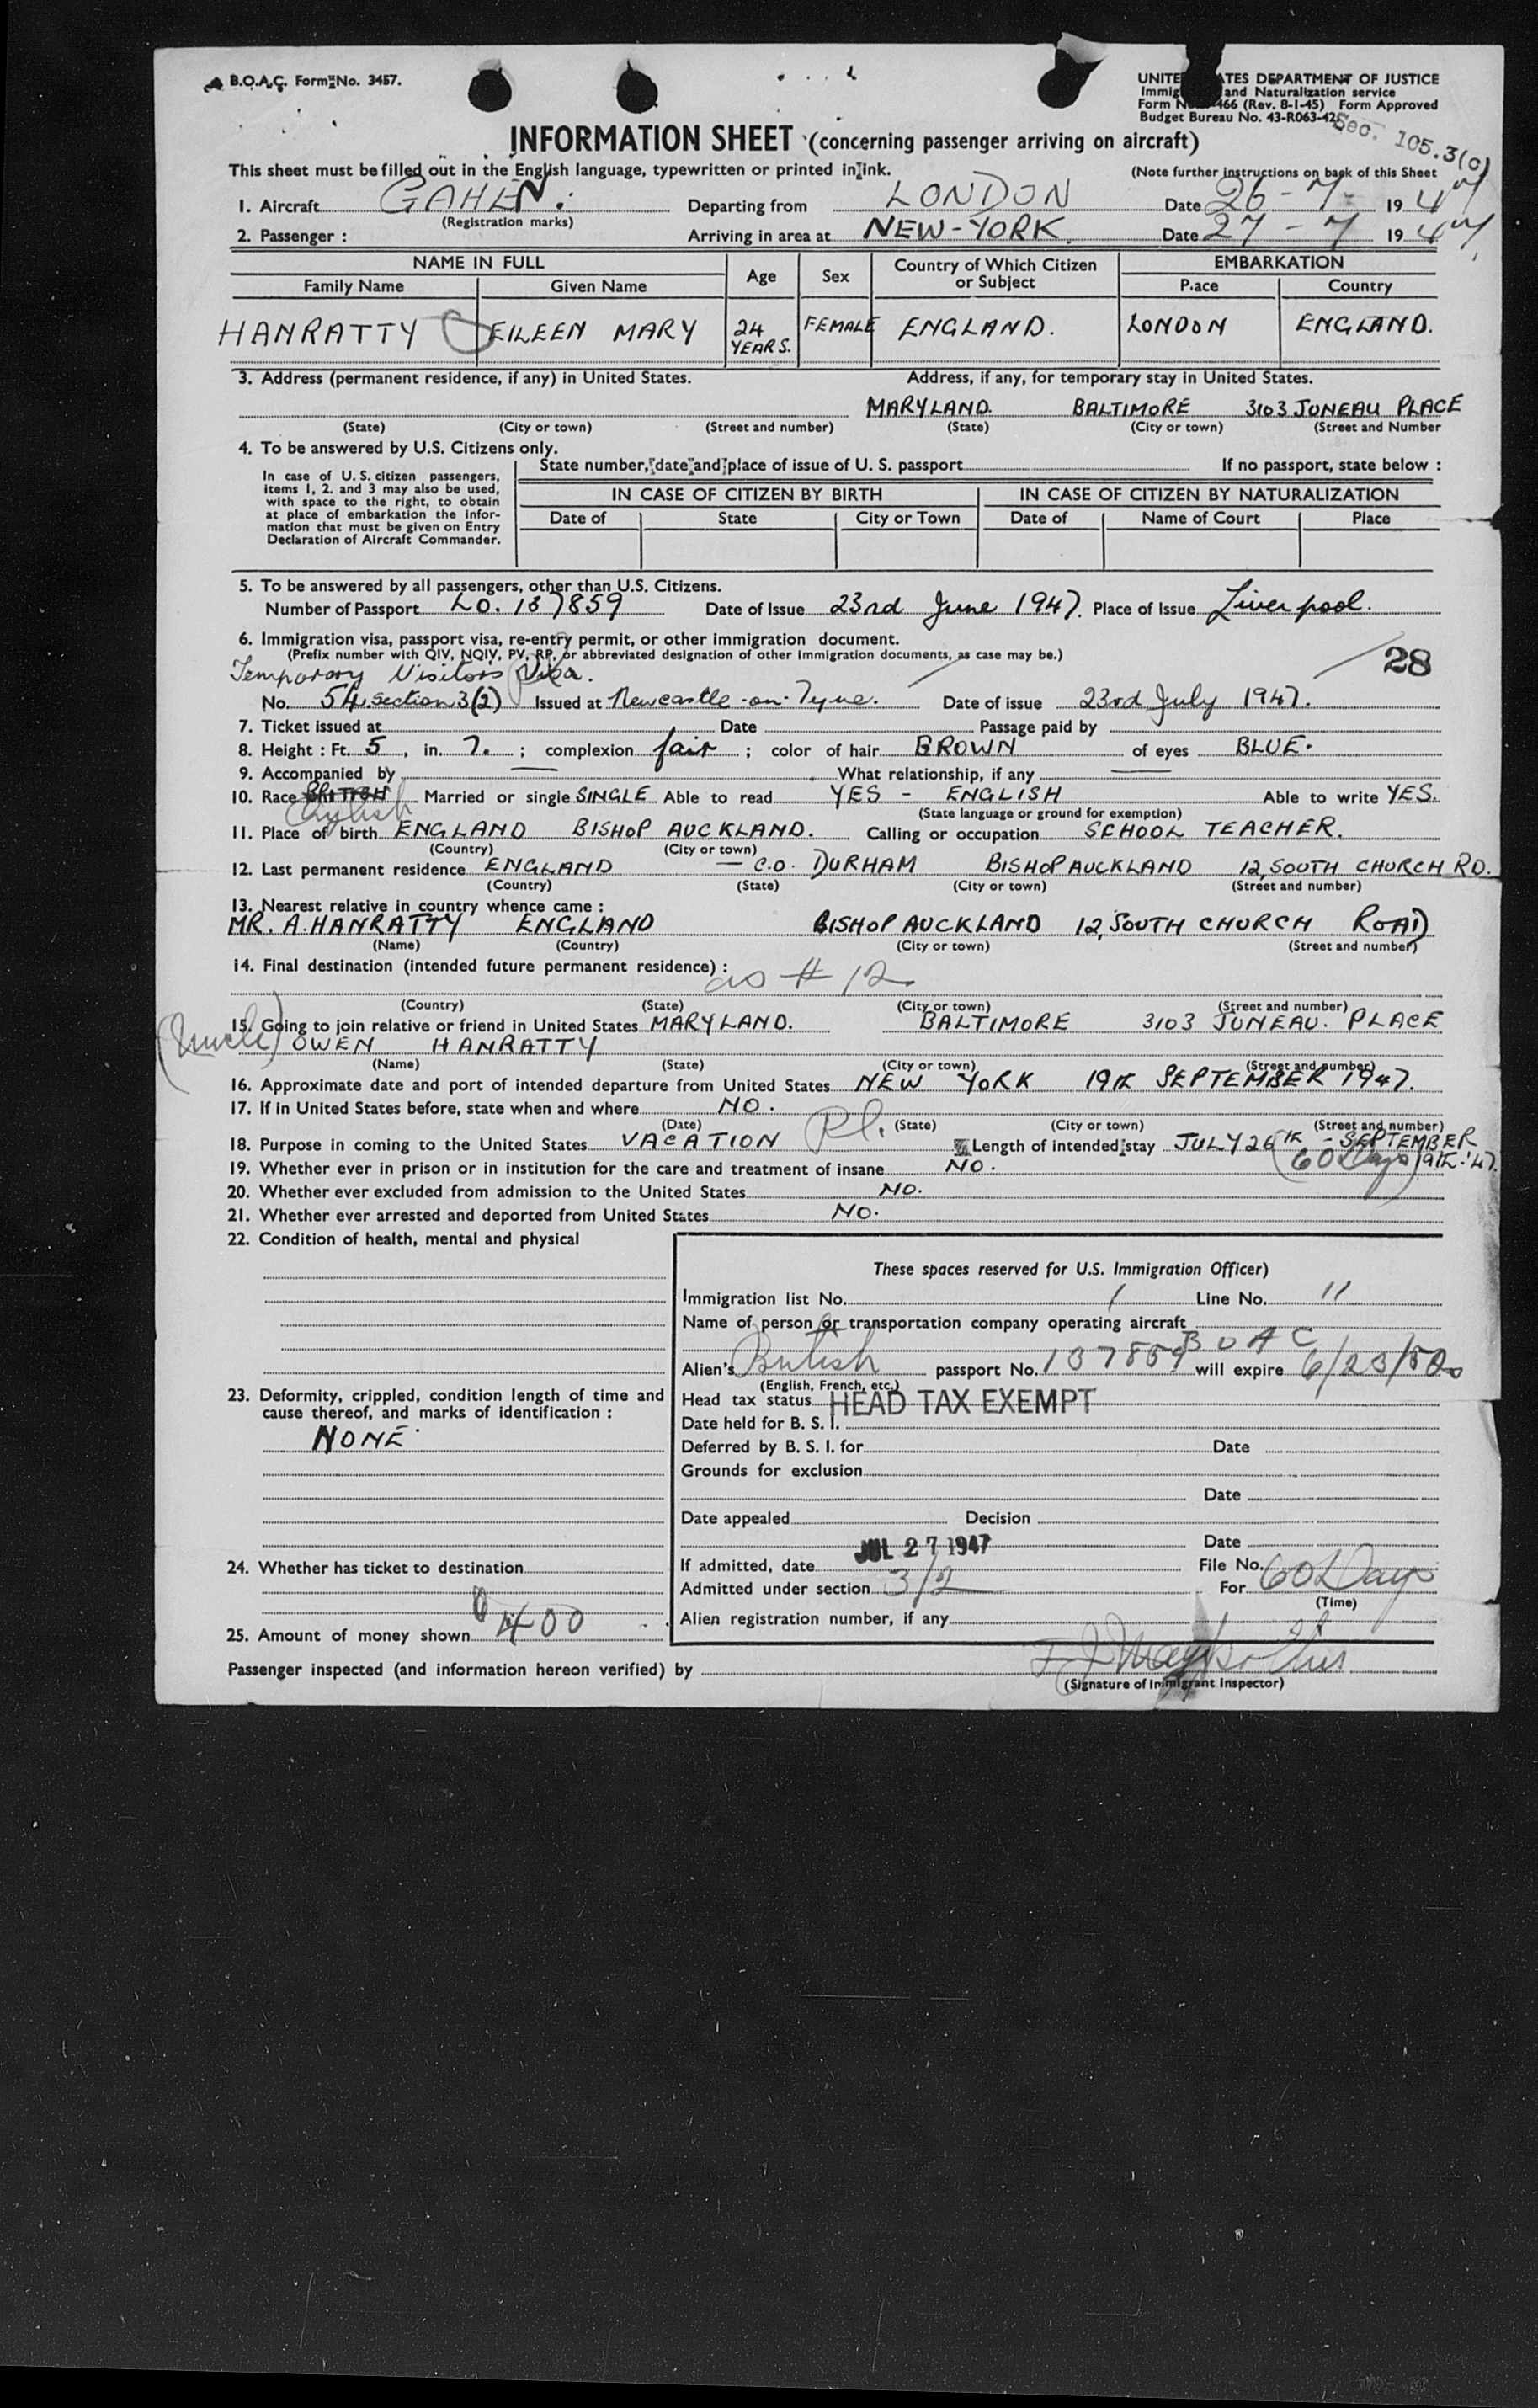 B.O.A.C. Form No. 3457.
UNITE TES DEPARTMENT OF JUSTICE
Immig and Naturalization service
Form N 466 (Rev. 8-1-45) Form Approved
Budget Bureau No. 43-R063-42
Sec. 105.3(c)
INFORMATION SHEET (concerning passenger arriving on aircraft)
This sheet must be filled out in the English language, typewritten or printed in ink. (Note further instructions on back of this Sheet
1. Aircraft GAHEN. Departing from LONDON Date 26-7- 1947
(Registration marks)
2. Passenger : Arriving in area at NEW-YORK. Date 27-7 1947
NAME IN FULL Age Sex Country of Which Citizen or Subject EMBARKATION
Family Name Given Name Place Country
HANRATTY EILEEN MARY 24 YEARS. FEMALE ENGLAND. LONDON ENGLAND.
3. Address (permanent residence, if any) in United States. Address, if any, for temporary stay in United States.
MARYLAND. BALTIMORE 3103 JUNEAU PLACE
(State) (City or town) (Street and number) (State) (City or town) (Street and Number
4. To be answered by U.S. Citizens only.
In case of U.S. citizen passengers,
items 1, 2. and 3 may also be used,
with space to the right, to obtain
at place of embarkation the infor-
mation that must be given on Entry
Declaration of Aircraft Commander.
State number, date and place of issue of U. S. passport If no passport, state below :
IN CASE OF CITIZEN BY BIRTH IN CASE OF CITIZEN BY NATURALIZATION
Date of State City or Town Date of Name of Court Place
5. To be answered by all passengers, other than U.S. Citizens.
Number of Passport LO. 137859 Date of Issue 23rd June 1947. Place of Issue Liverpool.
6. Immigration visa, passport visa, re-entry permit, or other immigration document.
(Prefix number with QIV, NQIV, PV, RP, or abbreviated designation of other immigration documents, as case may be.)
28
Temporary Visitors Visa.
No. 54. section 3(2) Issued at Newcastle-on-Tyne. Date of issue 23rd July 1947.
7. Ticket issued at Date Passage paid by
8. Height : Ft. 5, in. 7. ; complexion fair ; color of hair BROWN of eyes BLUE.
9. Accompanied by — What relationship, if any —
10. Race BRITISH English Married or single SINGLE Able to read YES - ENGLISH Able to write YES.
(State language or ground for exemption)
11. Place of birth ENGLAND BISHOP AUCKLAND. Calling or occupation SCHOOL TEACHER.
(Country) (City or town)
12. Last permanent residence ENGLAND — C.O. DURHAM BISHOP AUCKLAND 12, SOUTH CHURCH RD.
(Country) (State) (City or town) (Street and number)
13. Nearest relative in country whence came :
MR. A. HANRATTY ENGLAND BISHOP AUCKLAND 12, SOUTH CHURCH ROAD
(Name) (Country) (City or town) (Street and number)
14. Final destination (intended future permanent residence) :
as # 12
(Country) (State) (City or town) (Street and number)
15. Going to join relative or friend in United States MARYLAND. BALTIMORE 3103 JUNEAU. PLACE
(Uncle) OWEN HANRATTY
(Name) (State) (City or town) (Street and number)
16. Approximate date and port of intended departure from United States NEW YORK 19th SEPTEMBER 1947.
17. If in United States before, state when and where NO.
(Date) (State) (City or town) (Street and number)
18. Purpose in coming to the United States VACATION Pl. Length of intended stay JULY 26th - SEPTEMBER 19th. '47.
(60 Days)
19. Whether ever in prison or in institution for the care and treatment of insane NO.
20. Whether ever excluded from admission to the United States NO.
21. Whether ever arrested and deported from United States NO.
22. Condition of health, mental and physical
These spaces reserved for U.S. Immigration Officer)
Immigration list No. 1 Line No. 11
Name of person or transportation company operating aircraft
BOAC
Alien's British passport No. 137859 will expire 6/23/52
(English, French, etc.)
23. Deformity, crippled, condition length of time and
cause thereof, and marks of identification :
NONE
Head tax status HEAD TAX EXEMPT
Date held for B. S. I.
Deferred by B. S. I. for Date
Grounds for exclusion
Date
Date appealed Decision
Date
JUL 27 1947
24. Whether has ticket to destination
If admitted, date File No.
Admitted under section 3/2 For 60 Days
(Time)
Alien registration number, if any
25. Amount of money shown $400
Passenger inspected (and information hereon verified) by
(Signature of Immigrant Inspector)